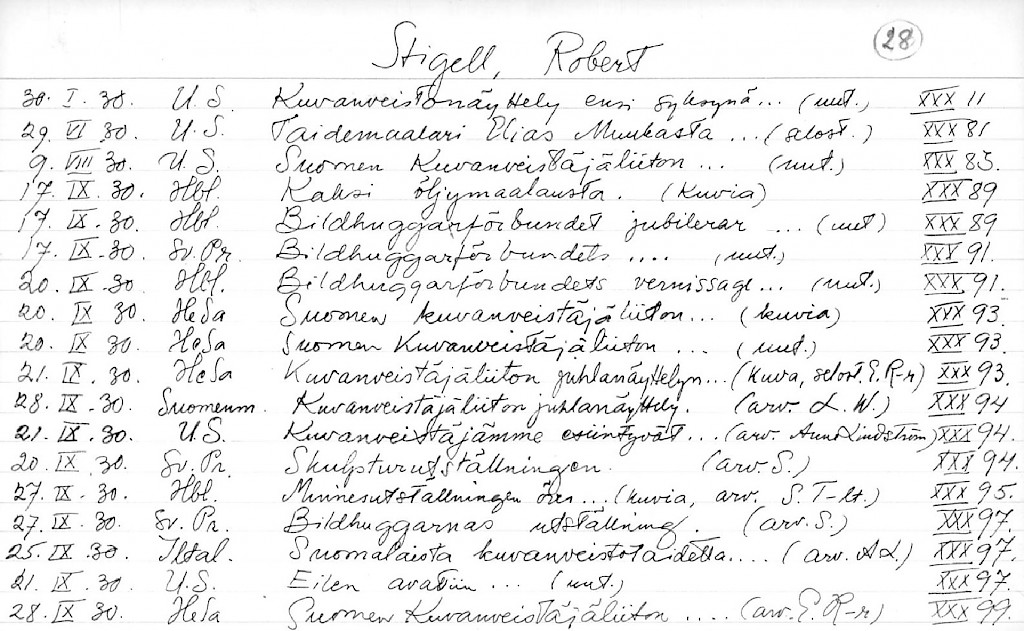 28
Stigell, Robert
30. I. 30. U.S. Kuvanveistonäyttely ensi syksynä... (uut.) XXX 11
29. VI 30. U.S. Taidemaalari Elias Muukasta ... (selost.) XXX 81
9. VIII 30. U.S. Suomen Kuvanveistäjäliiton ... (uut.) XXX 85.
17. IX. 30. Hbl. Kaksi öljymaalausta. (Kuvia) XXX 89
17. IX. 30. Hbl. Bildhuggarförbundet jubilerar ... (uut) XXX 89
17. IX. 30. Sv. Pr. Bildhuggarförbundets .... (uut.) XXX 91.
20. IX. 30 Hbl. Bildhuggarförbundets vernissage... (uut.) XXX 91.
20. IX 30. HeSa Suomen kuvanveistäjäliiton... (kuvia) XXX 93.
20. IX 30. HeSa Suomen Kuvanveistäjäliiton ... (uut.) XXX 93.
21. IX. 30. HeSa Kuvanveistäjäliiton juhlanäyttelyn... (kuva, selost. E.R-r) XXX 93.
28. IX. 30. Suomenm. Kuvanveistäjäliiton juhlanäyttely. (arv. L.W.) XXX 94
21. IX. 30. U.S. Kuvanveistäjämme esiintyvät ... (arv. Lindström) XXX 94.
20. IX. 30. Sv. Pr. Skulpturutställningen. (arv. S.) XXX 94.
27. IX. 30. Hbl. Minnesutställningen över... (kuvia, arv. S. T-lt.) XXX 95.
27. IX. 30. Sv. Pr. Bildhuggarnas utställning. (arv. S.) XXX 97.
25. IX. 30. Iltal. Suomalaista kuvanveistotaidetta.... (arv. A L) XXX 97.
21. IX. 30. U.S. Eilen avattiin ... (uut.) XXX 97.
28. IX 30. HeSa Suomen Kuvanveistäjäliiton ..... (arv. E. R-r) XXX 99.